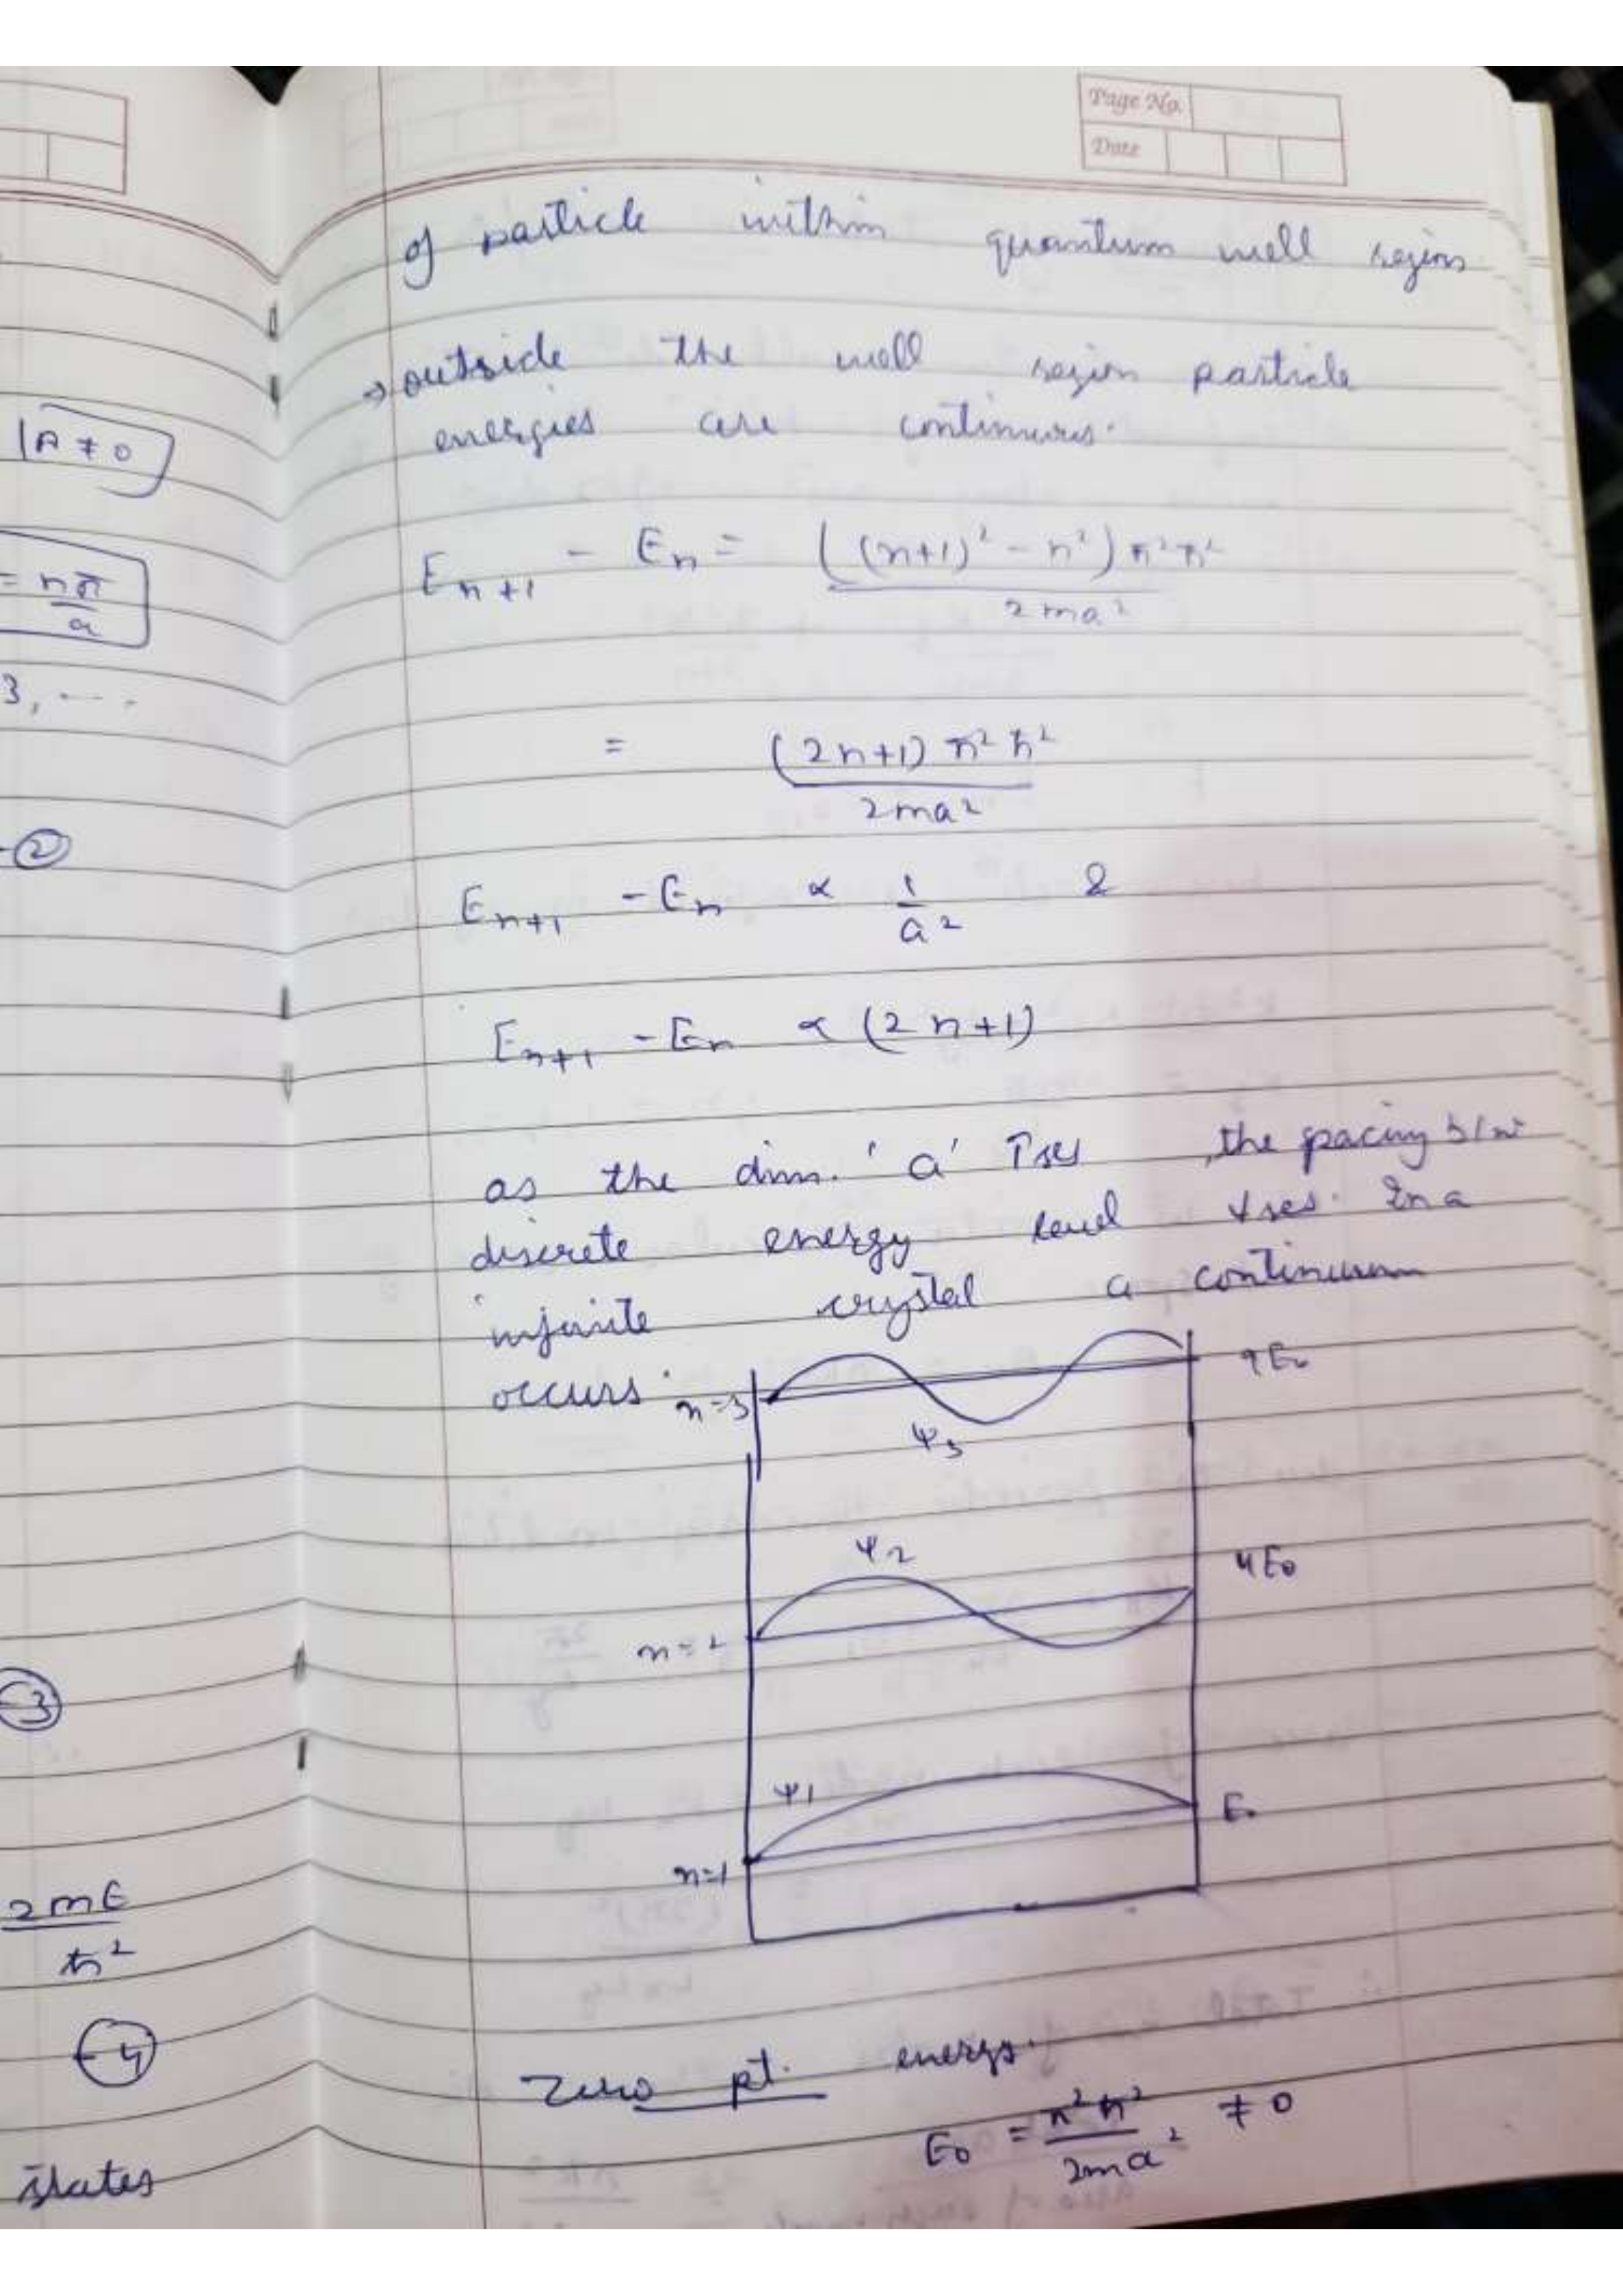 |A ≠ 0
= nπ/a
3, ....
-②
-③
2mE/ħ²
-④
states
Page No.
Date
of particle within quantum well region
→ outside the well region particle
energies are continuous.
E_{n+1} - E_n = ((n+1)² - n²) π² ħ² / 2ma²
= (2n+1) π² ħ² / 2ma²
E_{n+1} - E_n ∝ 1/a² &
E_{n+1} - E_n ∝ (2n+1)
as the dim. 'a' ↑ses, the spacing b/w
discrete energy level ↓ses. In a
infinite crystal a continuum
occurs.
n=3 ψ₃ 9E₀
n=2 ψ₂ 4E₀
n=1 ψ₁ E₀
Zero pt. energy.
E₀ = π² ħ² / 2ma² ≠ 0